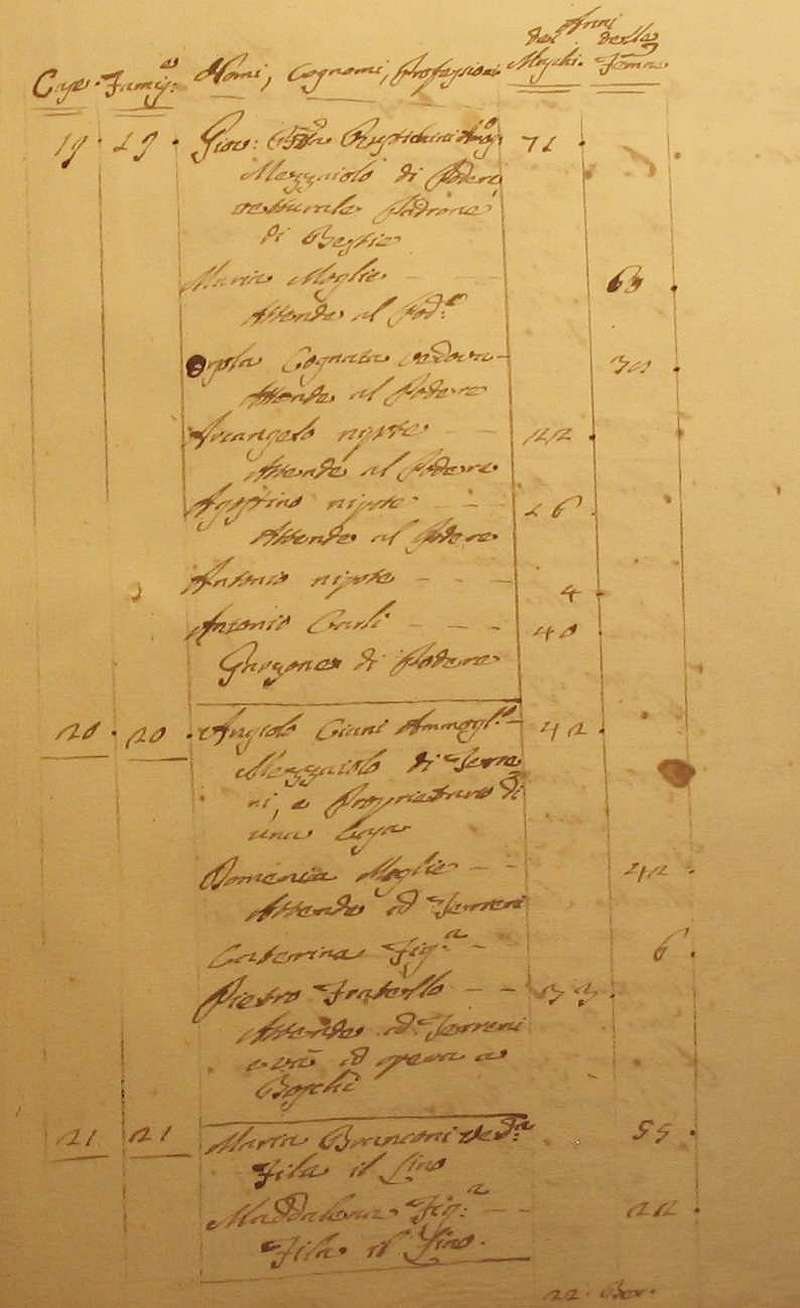 Anni
dei della
Case. Famig:e Nomi, Cognomi, Professioni Maschi. Femine
19. 19. Giov: Bta Amog:o 71.
Mezzaiolo di Podere
Padrone
di Bestie
Maria Moglie - - 63.
Attende al Pod:e
Orsola Cognata vedova - 30.
Attende al Podere
Arcangelo nipote - - 22.
Attende al Podere
Agostino nipote - - 16.
Attende al Podere
Antonio nipote - - - 4.
Antonio Carli - - - 40.
Garzone di Podere
20. 20. Angiolo Ciani Ammogl:o - 42.
Mezzaiolo di Terre
ni, e Proprietario di
una Casa
Domenica Moglie - - 42.
Attende ad Terreni
Caterina Fig:a - 6.
Pietro Fratello - - 33.
Attende ad Terreni
e và ad opera a
Boschi
21 21 Maria Branconi Ved:a 55.
Fila il Lino
Maddalena Fig:a - - 22.
Fila il Lino.
22.